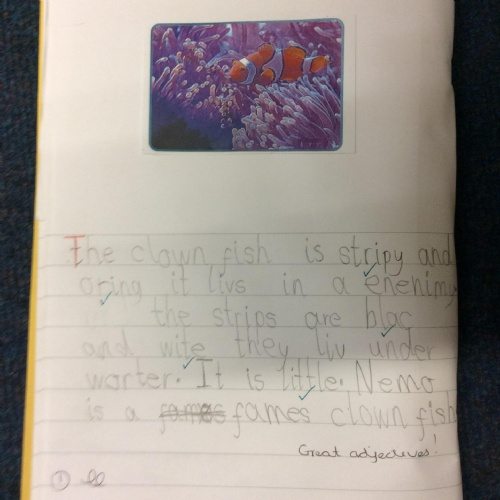 The clown fish is stripy and
oring it livs in a enenimy
the strips are blac
and wite they liv under
worter. It is little. Nemo
is a fames clown fish
Great adjectives!